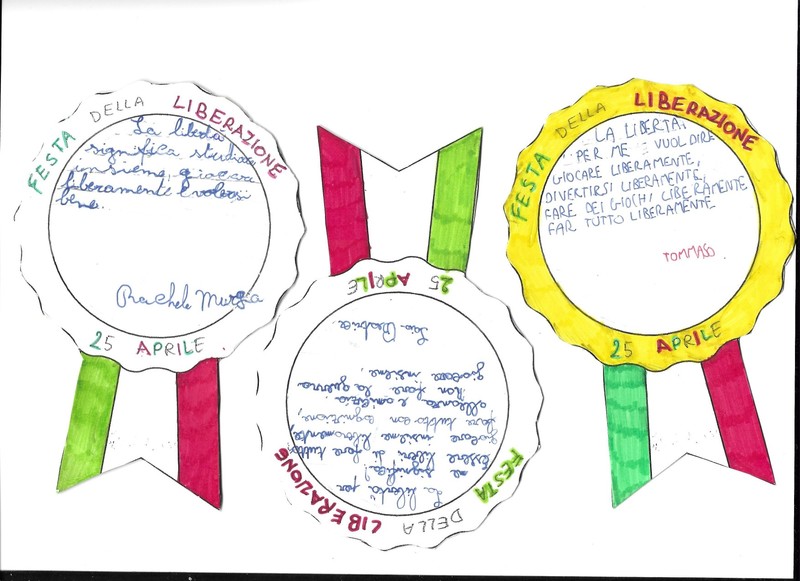 FESTA DELLA LIBERAZIONE
La libertà
significa studiare
insieme, giocare
liberamente e volersi
bene.
Rachele Murgia
25 APRILE
25 APRILE
FESTA DELLA LIBERAZIONE
La libertà per
me significa:
Essere liberi di fare tutto,
giocare insieme liberamente,
fare tutto con
alleanza e amicizia.
Non fare la guerra
giocare insieme.
Beatrice.
FESTA DELLA LIBERAZIONE
LA LIBERTA'
PER ME VUOL DIRE
GIOCARE LIBERAMENTE,
DIVERTIRSI LIBERAMENTE,
FARE DEI GIOCHI LIBERAMENTE
FAR TUTTO LIBERAMENTE
TOMMASO
25 APRILE